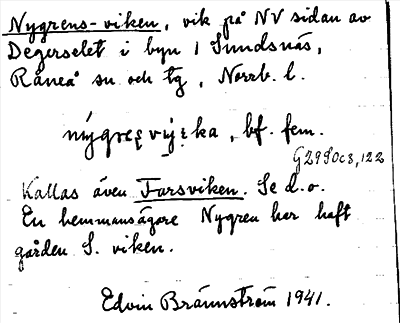 Nygrens-viken, vik på NV sidan av
Degerselet i byn 1 Sundsnäs,
Råneå sn och tg, Norrb. l.
bf. fem.
G2980c8, 122
Kallas även Farsviken. Se d.o.
En hemmansägare Nygren har haft
gården S. viken.
Edvin Brännström 1941.